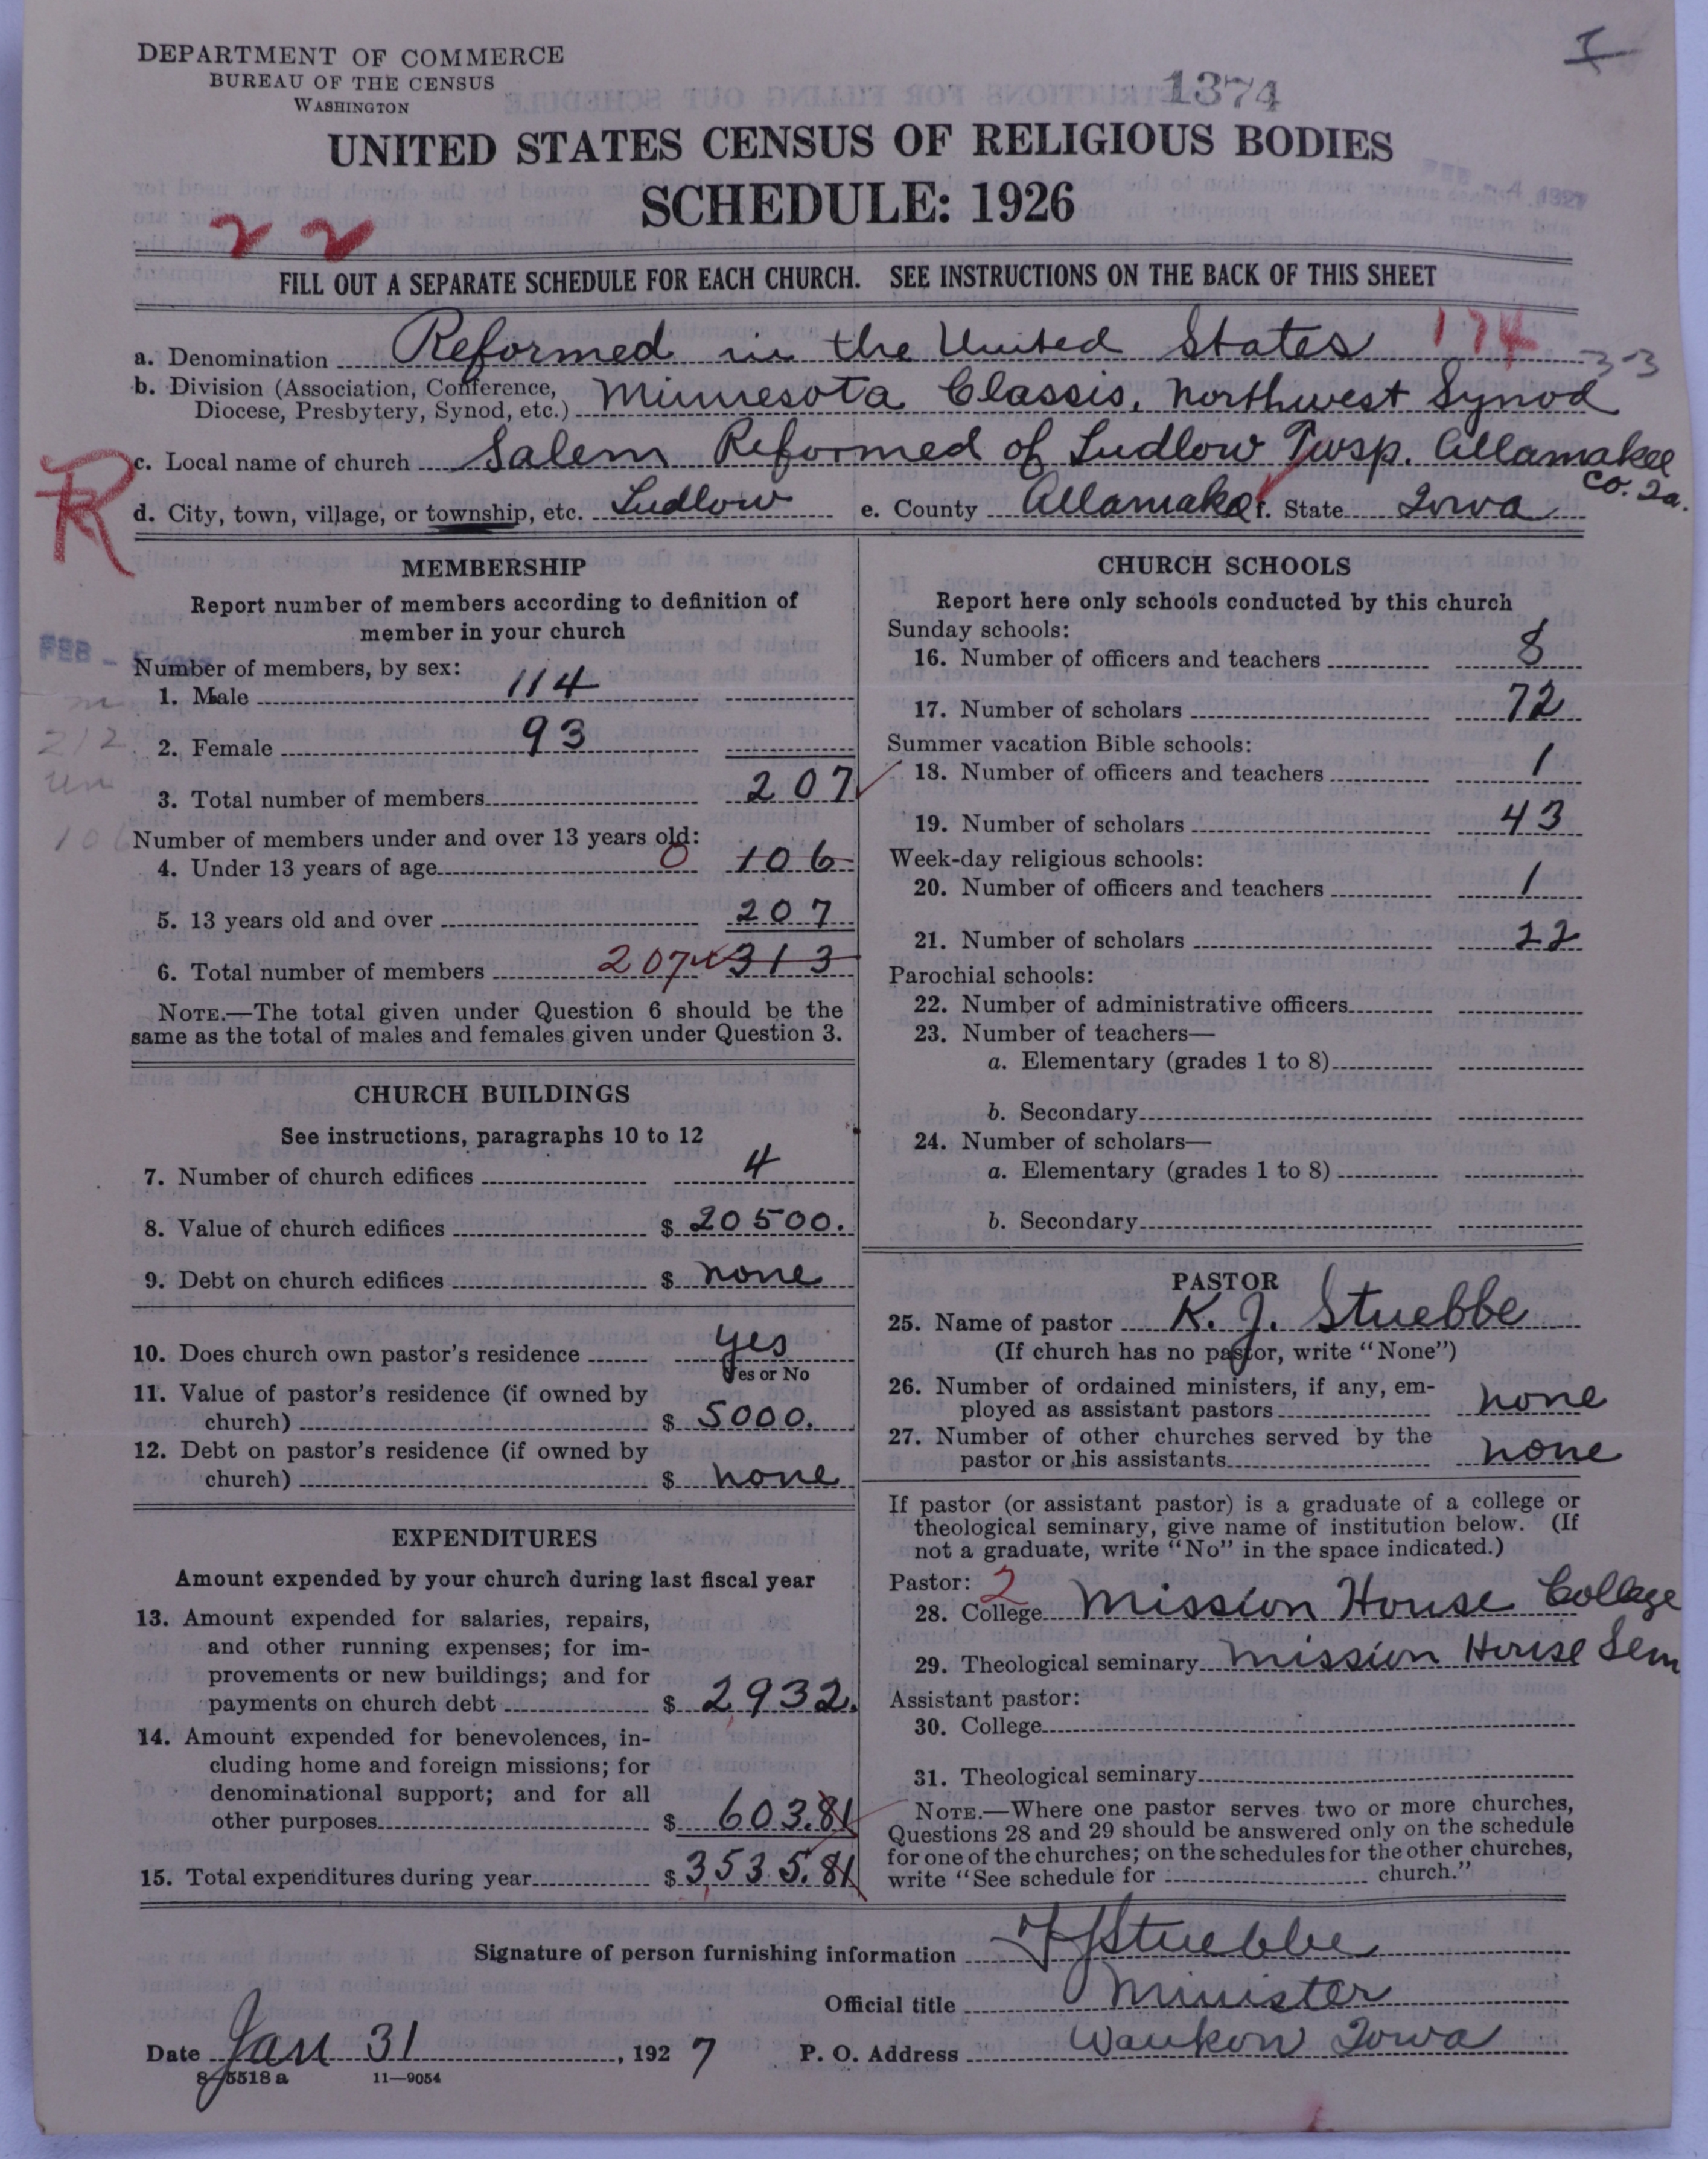 DEPARTMENT OF COMMERCE
BUREAU OF THE CENSUS
WASHINGTON
1374
UNITED STATES CENSUS OF RELIGIOUS BODIES
SCHEDULE: 1926
FEB - 4 1927
2 2
FILL OUT A SEPARATE SCHEDULE FOR EACH CHURCH. SEE INSTRUCTIONS ON THE BACK OF THIS SHEET
a. Denomination Reformed in the United States 174
3-3
b. Division (Association, Conference, Diocese, Presbytery, Synod, etc.) Minnesota Classis, Northwest Synod
c. Local name of church Salem Reformed of Ludlow Twsp. Allamakee Co. Ia.
R
d. City, town, village, or township, etc. Ludlow e. County Allamake f. State Iowa
MEMBERSHIP
Report number of members according to definition of
member in your church
FEB -
Number of members, by sex:
1. Male 114
2. Female 93
212
3. Total number of members 207
Number of members under and over 13 years old:
106
4. Under 13 years of age 0 106
5. 13 years old and over 207
6. Total number of members 207 313
NOTE.—The total given under Question 6 should be the
same as the total of males and females given under Question 3.
CHURCH BUILDINGS
See instructions, paragraphs 10 to 12
7. Number of church edifices 4
8. Value of church edifices $ 20500.
9. Debt on church edifices $ none
10. Does church own pastor's residence yes
Yes or No
11. Value of pastor's residence (if owned by
church) $ 5000.
12. Debt on pastor's residence (if owned by
church) $ none
EXPENDITURES
Amount expended by your church during last fiscal year
13. Amount expended for salaries, repairs,
and other running expenses; for im-
provements or new buildings; and for
payments on church debt $ 2932.
14. Amount expended for benevolences, in-
cluding home and foreign missions; for
denominational support; and for all
other purposes $ 603.81
15. Total expenditures during year $ 3535.81
CHURCH SCHOOLS
Report here only schools conducted by this church
Sunday schools:
16. Number of officers and teachers 8
17. Number of scholars 72
Summer vacation Bible schools:
18. Number of officers and teachers 1
19. Number of scholars 43
Week-day religious schools:
20. Number of officers and teachers 1
21. Number of scholars 22
Parochial schools:
22. Number of administrative officers
23. Number of teachers—
a. Elementary (grades 1 to 8)
b. Secondary
24. Number of scholars—
a. Elementary (grades 1 to 8)
b. Secondary
PASTOR
25. Name of pastor K. J. Stuebbe
(If church has no pastor, write "None")
26. Number of ordained ministers, if any, em-
ployed as assistant pastors none
27. Number of other churches served by the
pastor or his assistants none
If pastor (or assistant pastor) is a graduate of a college or
theological seminary, give name of institution below. (If
not a graduate, write "No" in the space indicated.)
Pastor: 2
28. College Mission House College
29. Theological seminary Mission House Sem
Assistant pastor:
30. College
31. Theological seminary
NOTE.—Where one pastor serves two or more churches,
Questions 28 and 29 should be answered only on the schedule
for one of the churches; on the schedules for the other churches,
write "See schedule for church."
Signature of person furnishing information KJStuebbe
Official title Minister
Date Jan 31, 1927 P. O. Address Waukon Iowa
8-5518 a 11—9054